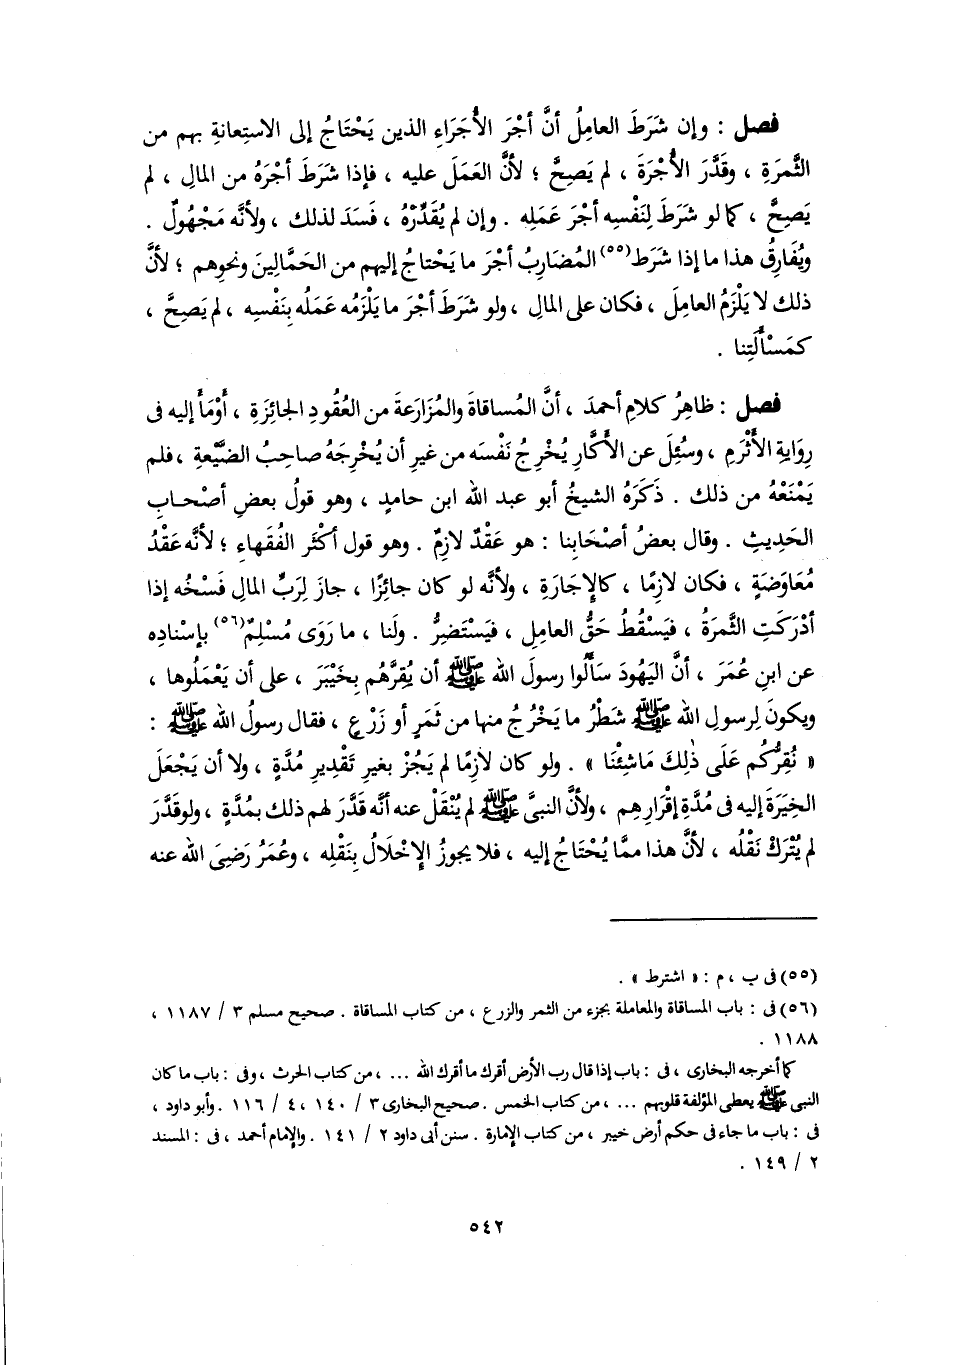 فصل : وإن شَرَطَ العامِلُ أنَّ أجْرَ الأُجَرَاءِ الذين يَحْتَاجُ إلى الاسْتِعانةِ بهم من
الثَّمرَةِ ، وقَدَّرَ الأُجْرَةَ ، لم يَصِحَّ ؛ لأنَّ العَمَلَ عليه ، فإذا شَرَطَ أجْرَهُ من المالِ ، لم
يَصِحَّ ، كما لو شَرَطَ لِنَفْسِه أجْرَ عَمَلِه . وإن لم يُقَدِّرْهُ ، فَسَدَ لذلك ، ولأنَّه مَجْهُولٌ .
ويُفَارِقُ هذا ما إذا شَرَط(٥٥) المُضَارِبُ أجْرَ ما يَحْتاجُ إليهم من الحَمَّالِينَ ونحوِهم ؛ لأنَّ
ذلك لا يَلْزَمُ العامِلَ ، فكان على المالِ ، ولو شَرَطَ أجْرَ ما يَلْزَمُه عَمَلُه بِنَفْسِه ، لم يَصِحَّ ،
كمَسْأَلَتِنا .
فصل : ظاهِرُ كلامِ أحمدَ ، أنَّ المُساقاةَ والمُزَارَعةَ من العُقُودِ الجائِزَةِ ، أَوْمَأَ إليه فى
رِوَايةِ الأَثْرَمِ ، وسُئِلَ عن الأكَّارِ يُخْرِجُ نَفْسَه من غيرِ أن يُخْرِجَهُ صاحِبُ الضَّيْعةِ ، فلم
يَمْنَعْهُ من ذلك . ذَكَرَهُ الشيخُ أبو عبد اللهِ ابن حامِدٍ ، وهو قولُ بعضِ أصْحابِ
الحَدِيثِ . وقال بعضُ أصْحَابِنا : هو عَقْدٌ لازِمٌ . وهو قول أكْثَرِ الفُقَهاءِ ؛ لأنَّه عَقْدُ
مُعَاوَضَةٍ ، فكان لازِمًا ، كالإِجَارَةِ ، ولأنَّه لو كان جائِزًا ، جازَ لِرَبِّ المالِ فَسْخُه إذا
أدْرَكَتِ الثَّمرَةُ ، فيَسْقُطُ حَقُّ العامِلِ ، فيَسْتَضِرُّ . ولَنا ، ما رَوَى مُسْلِمٌ(٥٦) بإسْنادِه
عن ابنِ عُمَرَ ، أنَّ اليَهُودَ سَأَلُوا رسولَ اللهِ ﷺ أن يُقِرَّهُم بِخَيْبَرَ ، على أن يَعْمَلُوها ،
ويكونَ لِرسولِ اللهِ ﷺ شَطْرُ ما يَخْرُجُ منها من ثَمَرٍ أو زَرْعٍ ، فقال رسولُ اللهِ ﷺ :
« نُقِرُّكُم عَلَى ذٰلِكَ مَاشِئْنَا » . ولو كان لازِمًا لم يَجُزْ بغيرِ تَقْدِيرِ مُدَّةٍ ، ولا أن يَجْعَلَ
الخِيَرَةَ إليه فى مُدَّةِ إقْرارِهِم ، ولأنَّ النبىَّ ﷺ لم يُنْقَلْ عنه أنَّه قَدَّرَ لهم ذلك بمُدَّةٍ ، ولو قَدَّرَ
لم يُتْرَكْ نَقْلُه ، لأنَّ هذا ممَّا يُحْتاجُ إليه ، فلا يجوزُ الإِخْلَالُ بِنَقْلِه ، وعُمَرُ رَضِىَ اللهُ عنه
(٥٥) فى ب ، م : « اشترط » .
(٥٦) فى : باب المساقاة والمعاملة بجزء من الثمر والزرع ، من كتاب المساقاة . صحيح مسلم ٣ / ١١٨٧ ،
١١٨٨ .
كما أخرجه البخارى ، فى : باب إذا قال رب الأرض أقرك ما أقرك الله ... ، من كتاب الحرث ، وفى : باب ما كان
النبى ﷺ يعطى المؤلفة قلوبهم ... ، من كتاب الخمس . صحيح البخارى ٣ / ١٤٠ ، ٤ / ١١٦ . وأبو داود ،
فى : باب ما جاء فى حكم أرض خيبر ، من كتاب الإمارة . سنن أبى داود ٢ / ١٤١ . والإمام أحمد ، فى : المسند
٢ / ١٤٩ .
٥٤٢